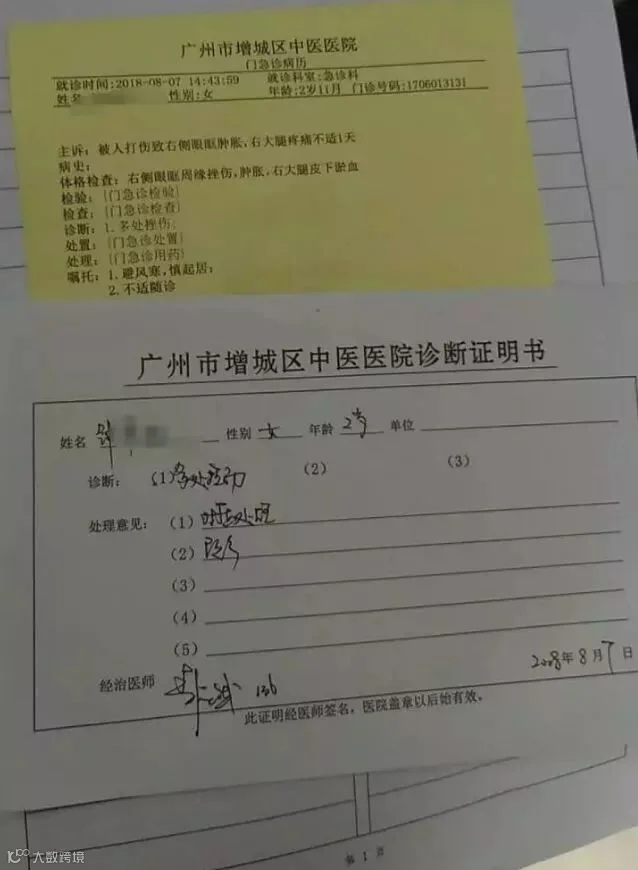 广州市增城区中医医院
门急诊病历
就诊时间:2018-08-07 14:43:59 就诊科室:急诊科
姓名 性别:女 年龄:2岁11月 门诊号码:1706013131
主诉: 被人打伤致右侧眼眶肿胀,右大腿疼痛不适1天
病史:
体格检查: 右侧眼眶周缘挫伤,肿胀,右大腿皮下淤血
检验: [门急诊检验]
检查: [门急诊检查]
诊断: 1.多处挫伤;
处置: [门急诊处置]
处理: [门急诊用药]
嘱托: 1.避风寒,慎起居;
2.不适随诊
广州市增城区中医医院诊断证明书
姓名 性别 女 年龄 2岁 单位
诊断: (1)多处挫伤 (2) (3)
处理意见: (1)对症处理
(2)
(3)
(4)
(5)
经治医师
2018年8月7日
此证明经医师签名,医院盖章以后始有效。
第 1 页
大数跨境